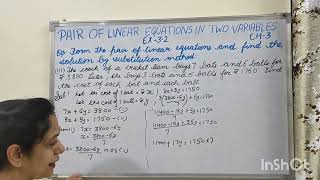 PAIR OF LINEAR EQUATIONS IN TWO VARIABLES
EX-3.2 CH-3
Q3 Form the pair of linear equations and find the
solution by substitution method
(iii) The coach of a cricket team buys 7 bats and 6 balls for
₹3800. Later, she buys 3 bats and 5 balls for ₹1750. Find
the cost of each bat and each ball
Let the cost of 1 bat = ₹x
Let the cost of 1 ball = ₹y
7x + 6y = 3800 - (i)
3x + 5y = 1750 - (ii)
7x = 3800 - 6y
x = 3800 - 6y
7
3x + 5y = 1750
3(3800-6y) + 5y = 1750
7
11400 - 18y + 5y = 1750
7
11400 - 18y + 35y = 1750
7
11400 + 17y = 1750 x 7
InShOt